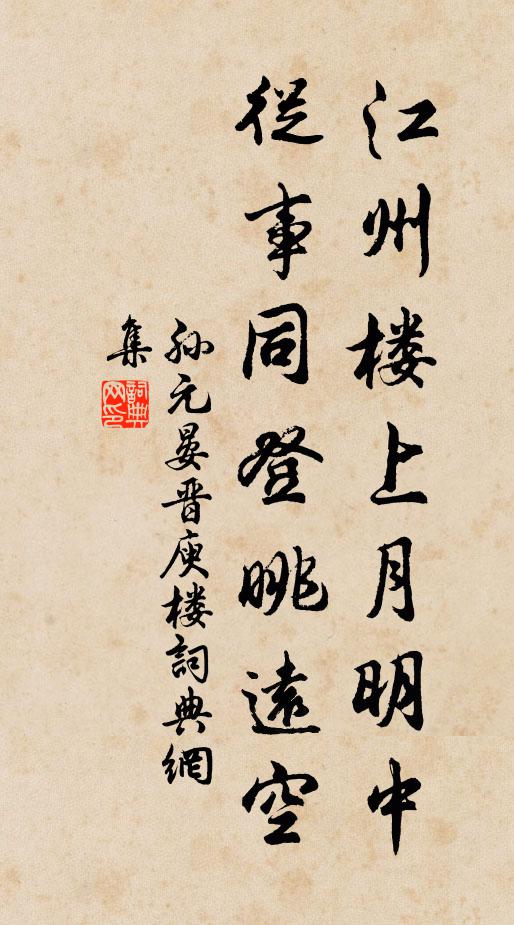 江州楼上月明中
従事同登眺遠空
孙元晏晋庾楼詞典網
集
詞典网印